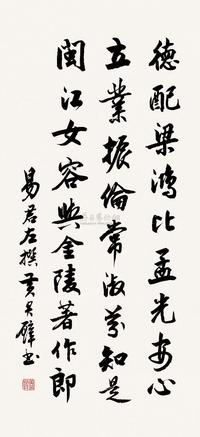 德配梁鴻比孟光安心
立業振倫常淑芬知是
閩江女容與金陵著作郎
易君左撰黃君璧書